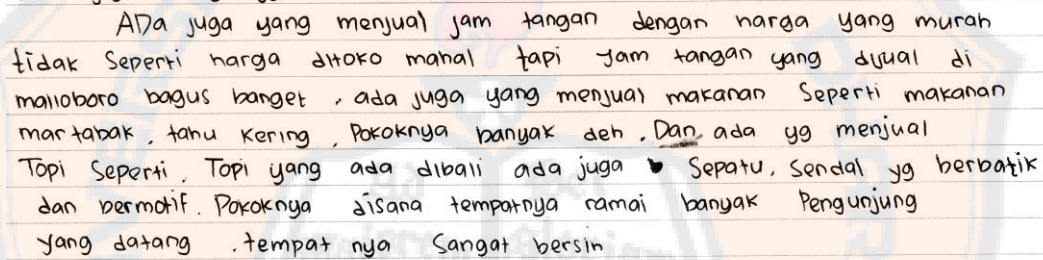 ADa juga yang menjual jam tangan dengan harga yang murah
tidak Seperti harga ditoko mahal tapi Jam tangan yang dijual di
malioboro bagus banget, ada juga yang menjual makanan Seperti makanan
martabak, tahu kering, Pokoknya banyak deh. Dan ada yg menjual
Topi Seperti. Topi yang ada dibali ada juga Sepatu, Sendal yg berbatik
dan bermotif. Pokoknya disana tempatnya ramai banyak Pengunjung
yang datang. tempat nya Sangat bersih